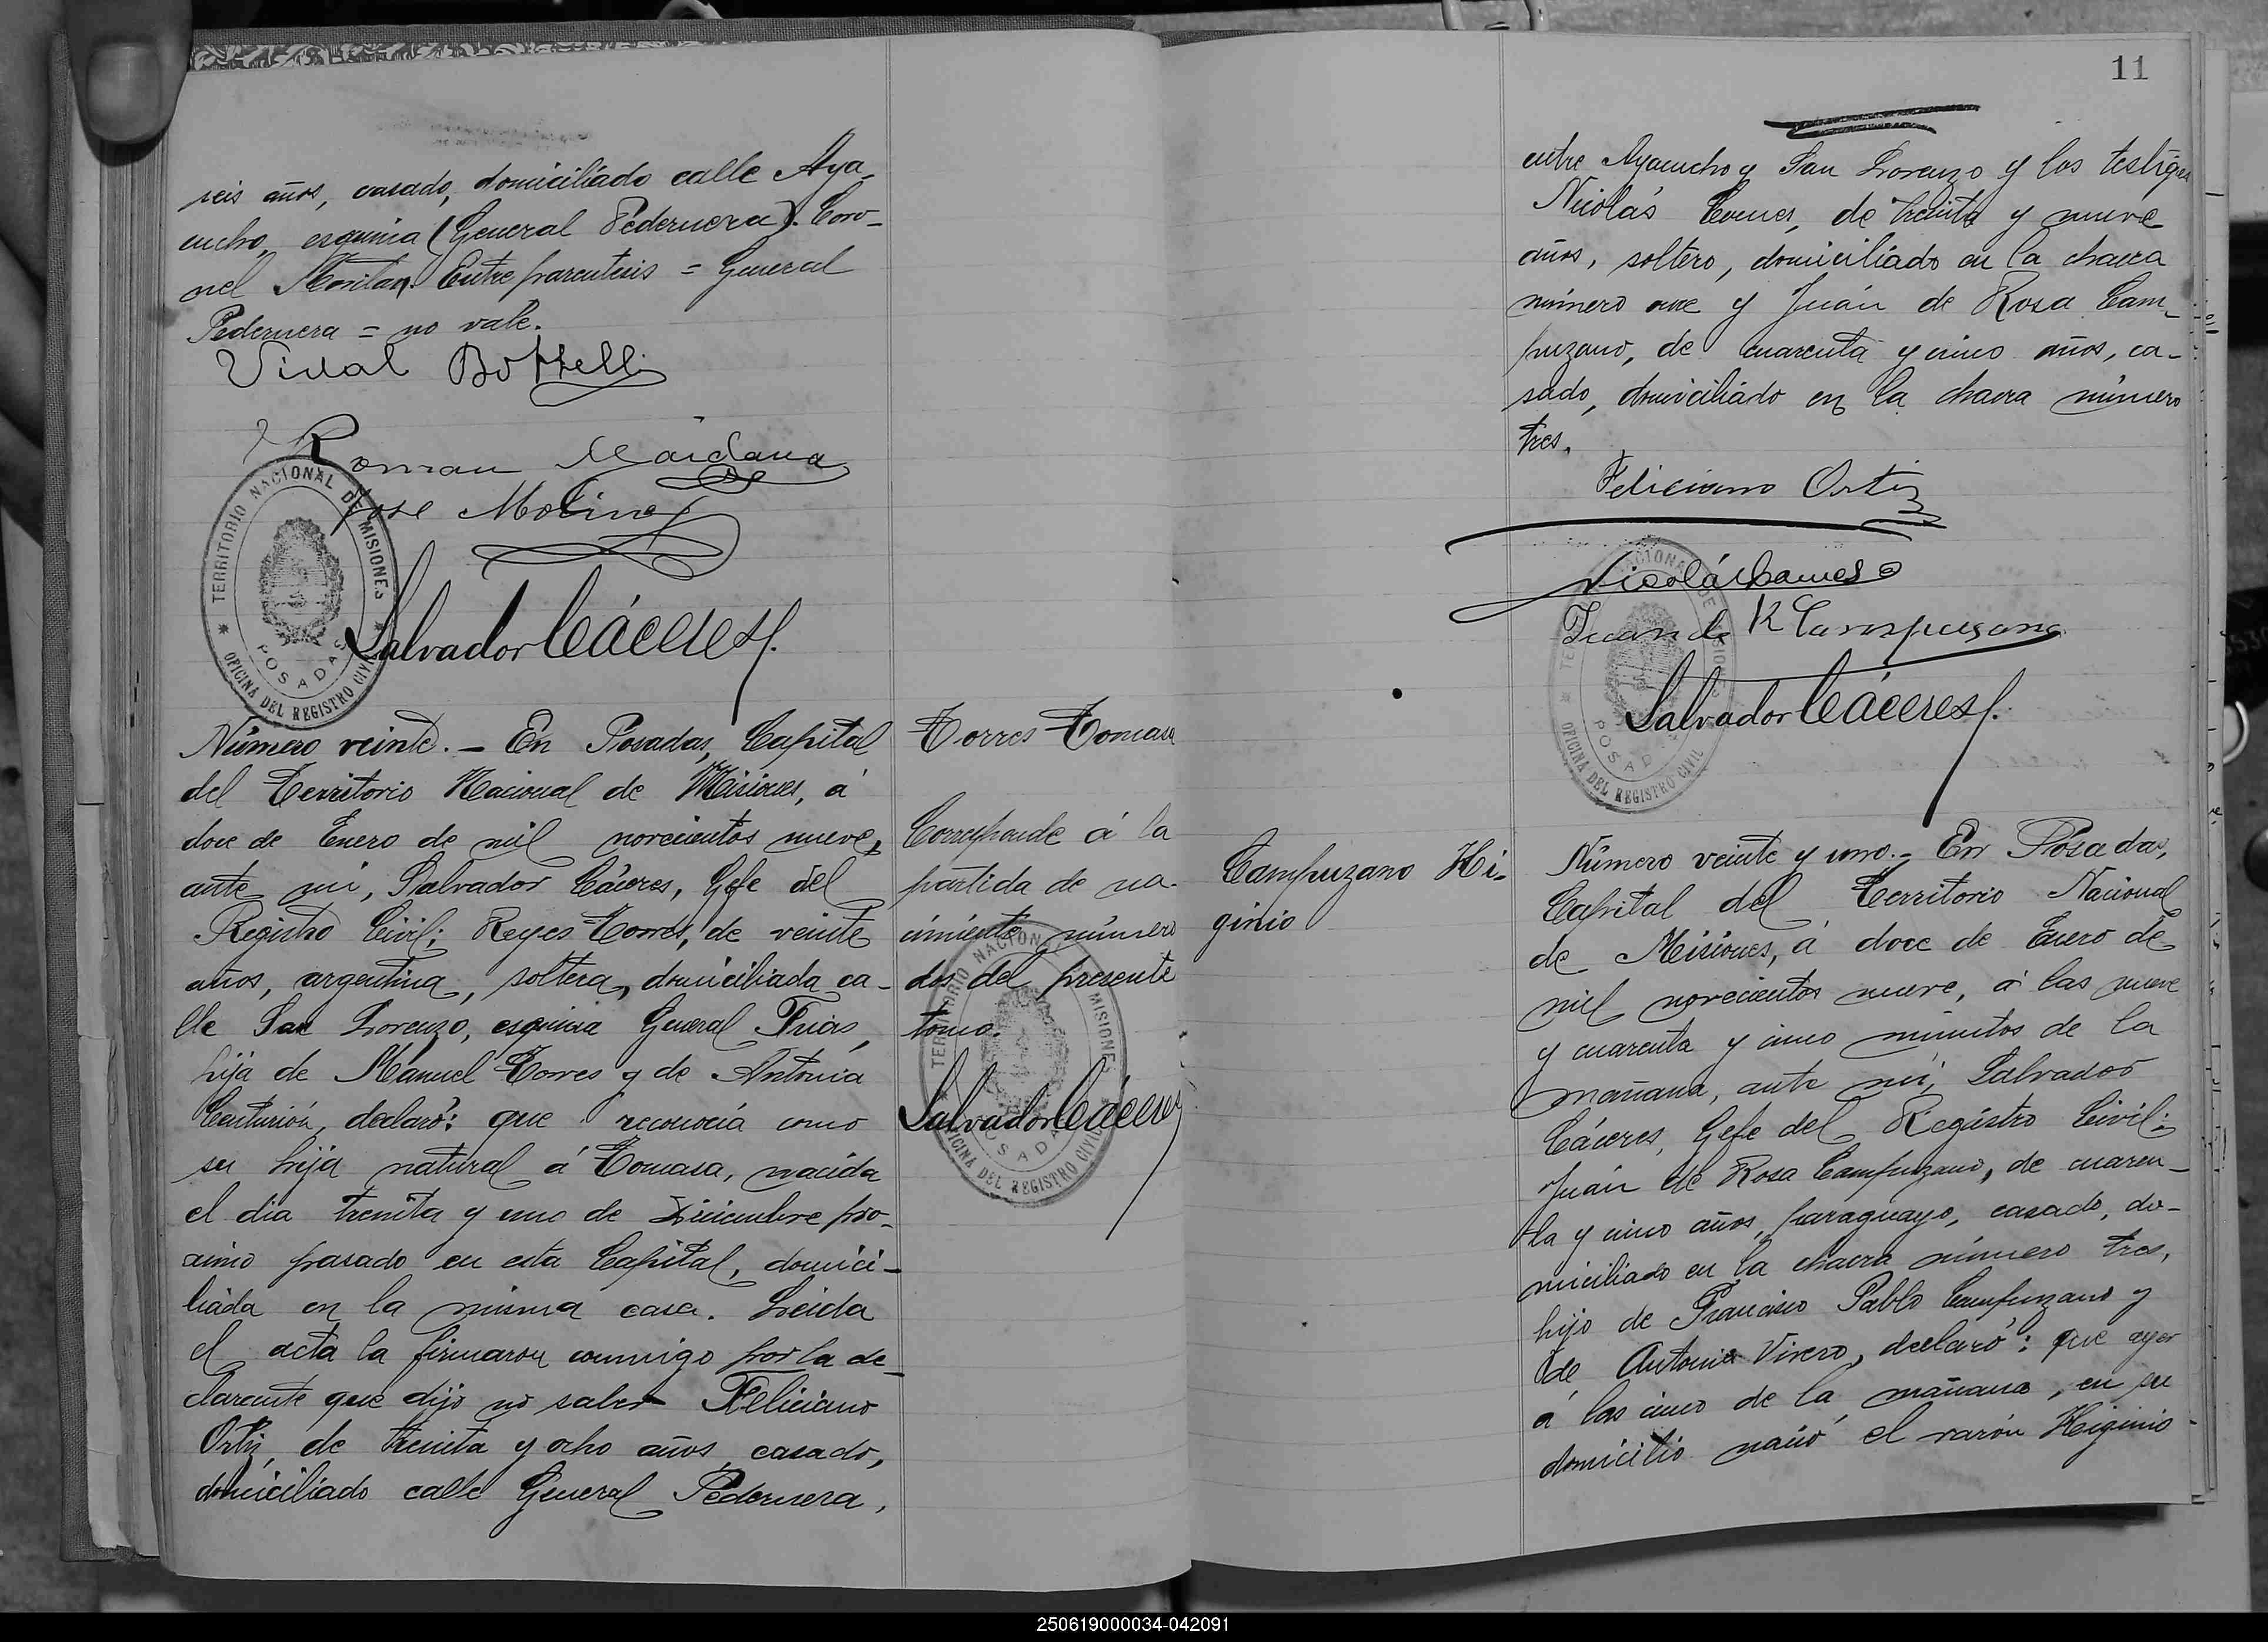 seis años, casado, domiciliado calle Aya-
cucho, esquina (General Pedernera). Coro-
nel Entre parentesis = General
Pedernera = no vale.
Vidal Bottelli
Roman Maidana
Jose Molina
TERRITORIO NACIONAL DE MISIONES
POSADAS
OFICINA DEL REGISTRO CIVIL
Salvador Cáceres
Número veinte. - En Posadas, Capital
del Territorio Nacional de Misiones, á
doce de Enero de mil novecientos nueve,
ante mi, Salvador Cáceres, Gefe del
Registro Civil; Reyes Torres, de veinte
años, argentina, soltera, domiciliada ca-
lle San Lorenzo, esquina General Frias,
hija de Manuel Torres y de Antonia
Centurión, declaró: que reconocia como
su hija natural á Tomasa, nacida
el dia treinta y uno de Diciembre pro-
ximo pasado en esta Capital, domici-
liada en la misma casa. Leida
el acta la firmaron conmigo por la de-
clarante que dijo no saber Feliciano
Ortiz, de treinta y ocho años, casado,
domiciliado calle General Pedernera,
Torres Tomasa
Corresponde á la
partida de na-
cimiento número
dos del presente
tomo.
TERRITORIO NACIONAL DE MISIONES
POSADAS
OFICINA DEL REGISTRO CIVIL
Salvador Cáceres
11
entre Ayacucho y San Lorenzo y los testigos
Nicolás de treinta y nueve
años, soltero, domiciliado en la chacra
número once y Juán de Rosa Cam-
puzano, de cuarenta y cinco años, ca-
sado, domiciliado en la chacra número
tres.
Feliciano Ortiz
Nicolás
Juan de R Campusano
TERRITORIO NACIONAL DE MISIONES
POSADAS
OFICINA DEL REGISTRO CIVIL
Salvador Cáceres
Campuzano Hi-
ginio
Número veinte y uno. - En Posadas,
Capital del Territorio Nacional
de Misiones, á doce de Enero de
mil novecientos nueve, á las nueve
y cuarenta y cinco minutos de la
mañana, ante mi, Salvador
Cáceres, Gefe del Registro Civil;
Juán de Rosa Campuzano, de cuaren-
ta y cinco años, paraguayo, casado, do-
miciliado en la chacra número tres,
hijo de Francisco Pablo Campuzano y
de Antonia Vivero, declaró: que ayer
á las cinco de la mañana, en su
domicilio nació el varón Higinio
250619000034-042091